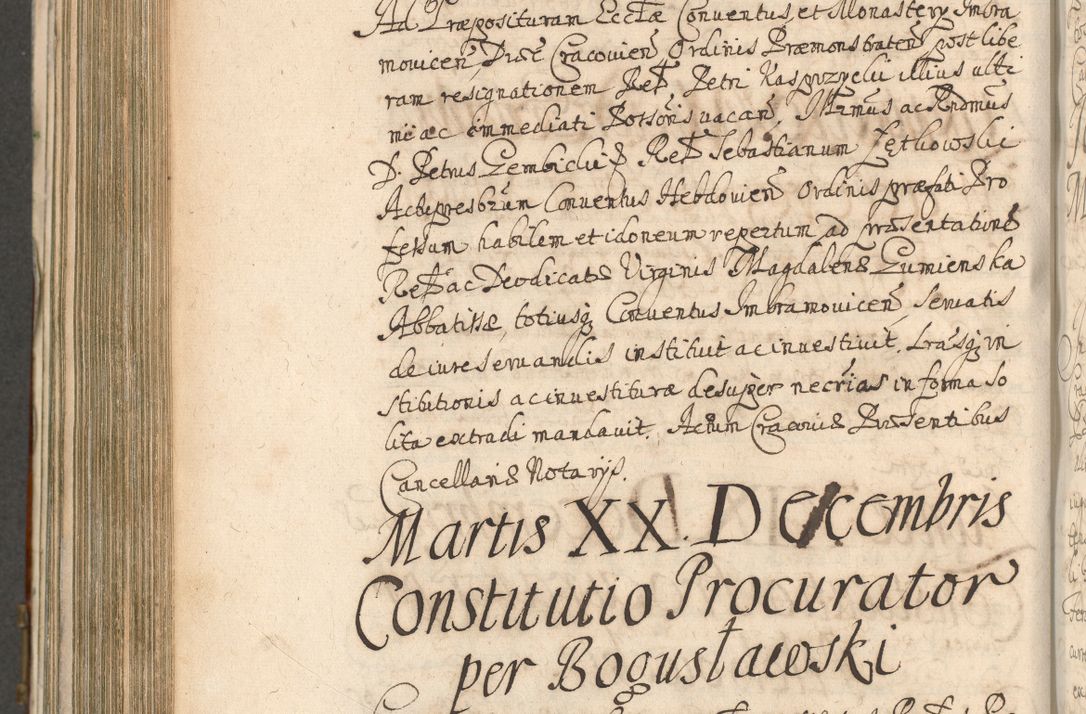 Ad Præposituram Eccłæ Conventus, et Monastery Imbra
movicen̄, Diæc̄ Cracovien̄ Ordinis Præmonstraten̄, post libe
ram resignationem Red̄, Petri Kasprzycki illius ulti
mi ac immediati Possōris vacan̄, Illr̄mus ac Rn̄dmus
D. Petrus Gembicki Red̄ Sebastianum Zętkowski
Actupresb̄rum Conventus Hebdovien̄ Ordinis præfati Pro
fessum habilem et idoneum repertum, ad præsentatione
Red̄ ac Deodicatæ Virginis Magdalenæ Gumienska
Abbatissæ, totiusq; Conventus Imbramovicen̄, servatis
de iure servandis instituit ac investivit. Lrāsq; in
stitutionis ac investituræ desuper necr̄ias in forma so
lita extradi mandavit. Actum Cracoviæ Præsentibus
Cancellariæ Notarijs.
Martis XX. Decembris
Constitutio Procurator
per Bogusławski